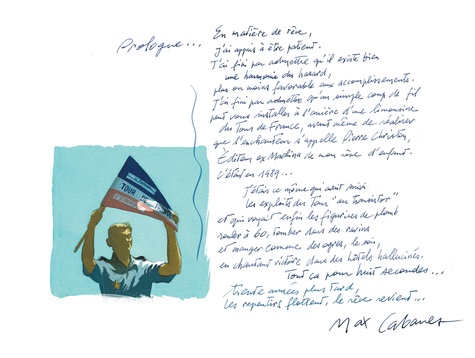 Prologue...
En matière de rêve,
j'ai appris à être patient.
J'ai fini par admettre qu'il existe bien
une harmonie du hasard,
plus ou moins favorable aux accomplissements.
J'ai fini par admettre qu'un simple coup de fil
peut vous installer à l'arrière d'une limousine
du Tour de France, avant même de réaliser
que l'enchanteur s'appelle Pierre Christin,
Éditeur ex Machina de mon rêve d'enfant.
C'était en 1989...
J'étais ce môme qui avait suivi
les exploits du Tour "au transistor"
et qui voyait enfin les figurines de plomb
rouler à 60, tomber dans des ravins
et manger comme des ogres, le soir,
en chantant victoire dans des hôtels hallucinés.
Tout ça pour huit secondes...
trente années plus tard,
les repentirs flottent, le rêve revient...
Max Cabanes
TOUR DE